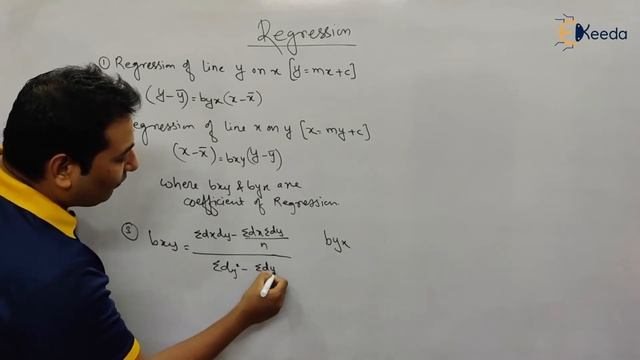 Regression
Ekeeda
① Regression of line y on x [y=mx+c]
(y-ȳ)=byx(x-x̄)
egression of line x on y [x=my+c]
(x-x̄)=bxy(y-ȳ)
where bxy & byx are
coefficient of Regression
③ bxy = (Σdxdy - ΣdxΣdy/n) / (Σdy² - Σdy byx